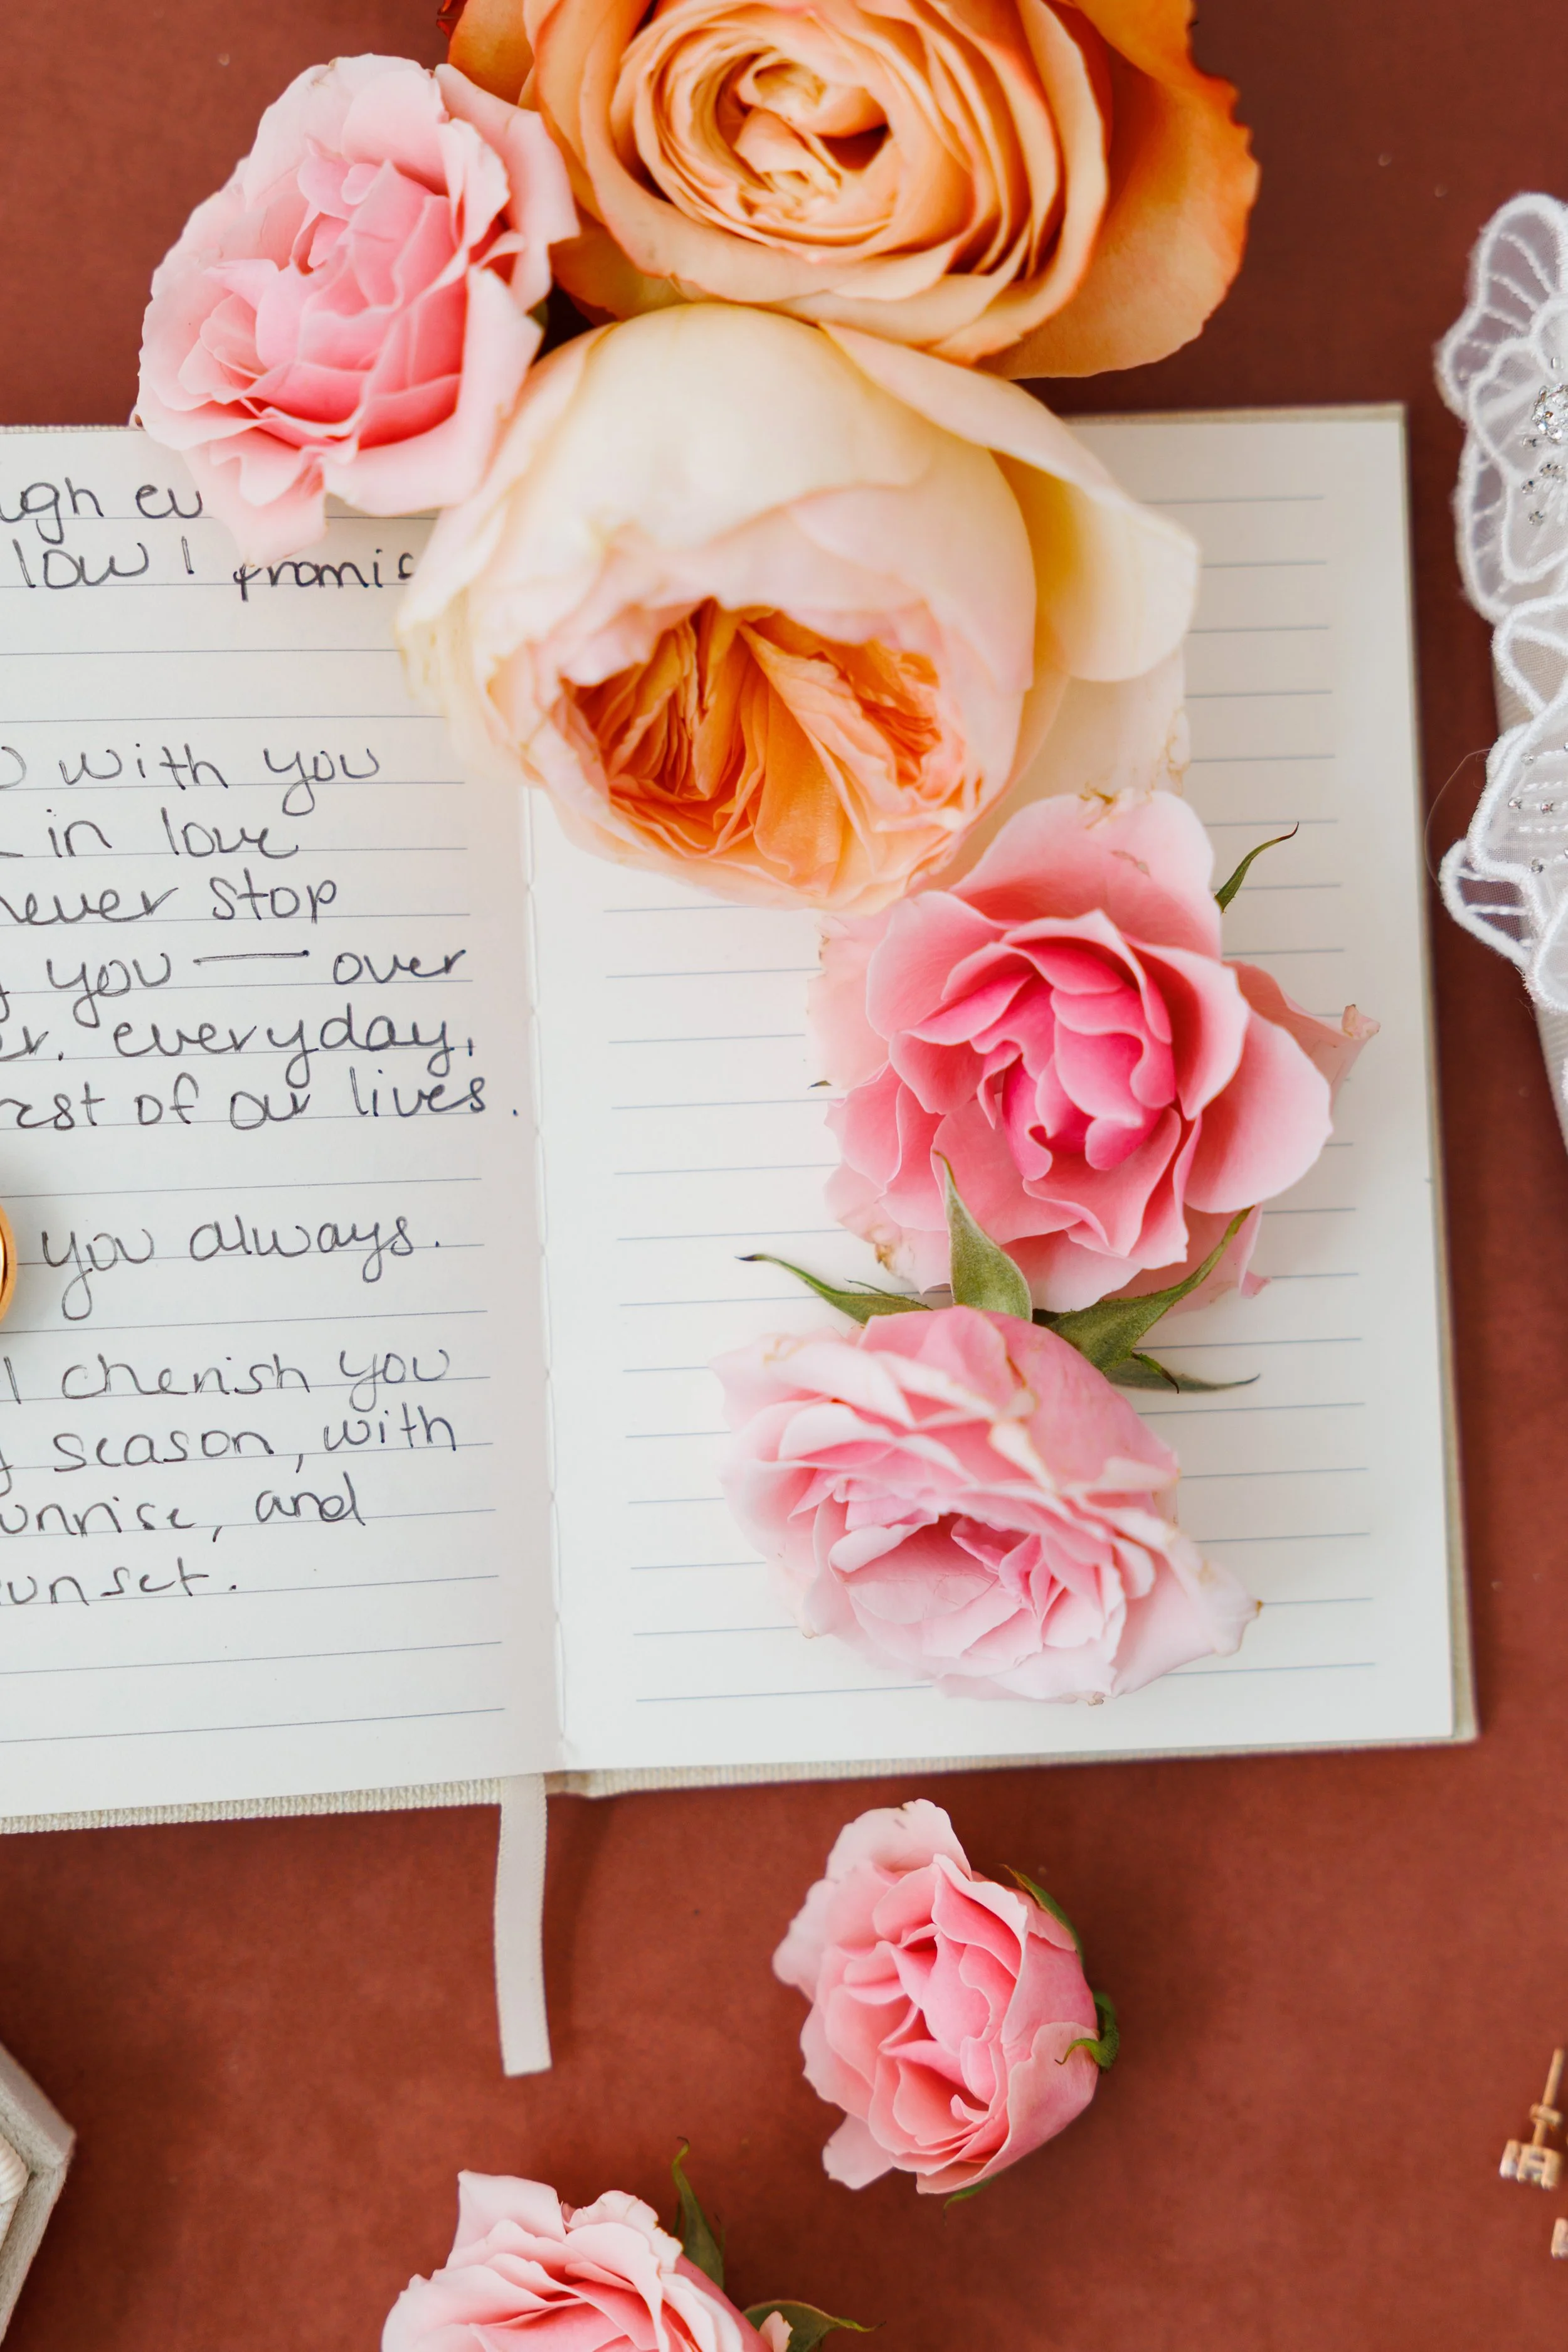 ugh ev
low I promis
with you
in love
never stop
you — over
er. everyday,
rest of our lives.
you always.
I cherish you
season, with
sunrise, and
sunset.